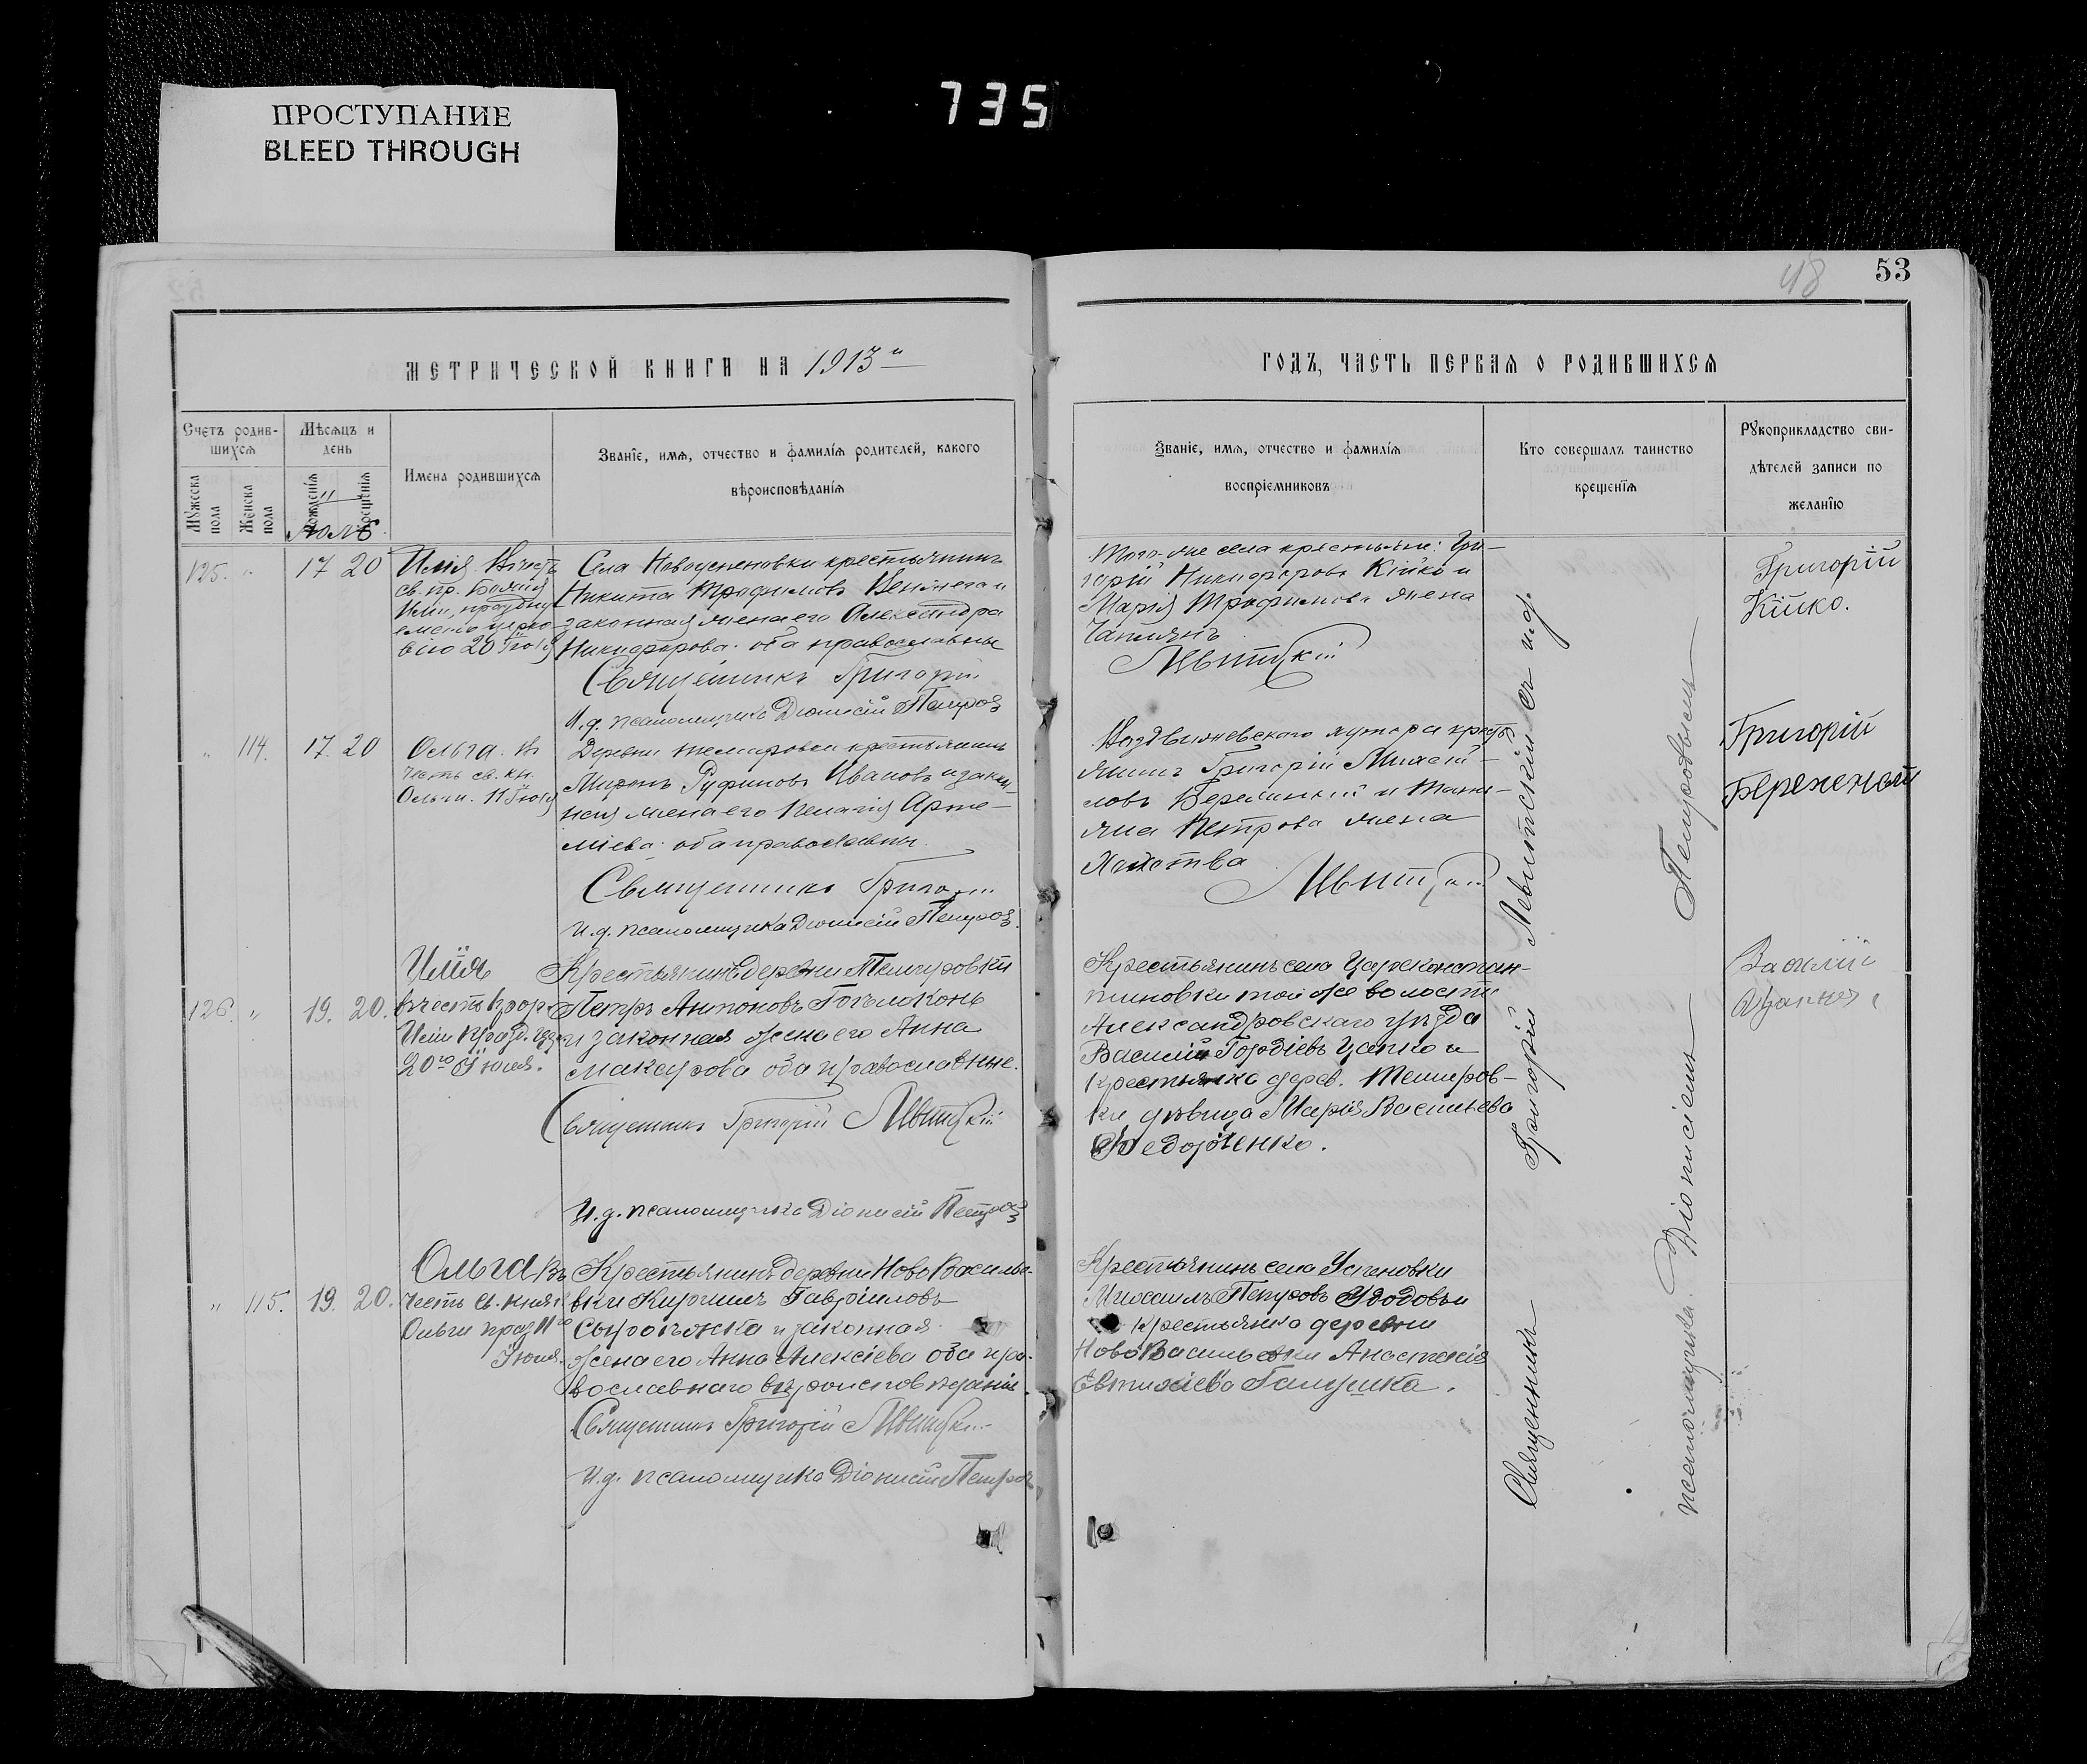 ПРОСТУПАНИЕ
BLEED THROUGH
735
48
53
МЕТРИЧЕСКОЙ КНИГИ НА 1913
Счетъ родив-
шихся
Мужеска пола
Женска пола
Мѣсяцъ и
день
Рожденія
Крещенія
Имена родившихся
Званіе, имя, отчество и фамилія родителей, какого
вѣроисповѣданія
125. " 17 20
Илія. Въ честь
св. пр. Божія
Иліи, праздну
емаго церко
вію 20 Іюля
Села Новоуспеновки крестьянинъ
Никита Трофимовъ и
законная жена его Александра
Никифорова. оба православные
Священникъ Григорій
И.д. псаломщика Діонисій Петровъ
" 114. 17. 20
Ольга. въ
честь св. кн.
Ольги. 11 Іюля
Деревни Темировки крестьянинъ
Миронъ Руфимовъ Ивановъ и закон-
ная жена его Пелагія Арте-
міева. оба православны.
Священникъ Григорій
И.д. псаломщика Діонисій Петровъ.
126. " 19. 20.
Илія
въ честь прор.
Иліи празд.
20го Іюля.
Крестьянинъ деревни Темировки
Петръ Антоновъ
и законная жена его Анна
Макарова оба православные.
Священникъ Григорій Левитскій
И.д. псаломщика Діонисій Петровъ
" 115. 19. 20.
Ольга въ
честь св. княг.
Ольги праз 11го
Іюля.
Крестьянинъ деревни НовоВасилье-
вки Кирилъ Гавріиловъ
и законная
жена его Анна Алексіева оба пра-
вославнаго вѣроисповѣданія.
Священникъ Григорій Левитскій
И.д. псаломщика Діонисій Петровъ
ГОДЪ, ЧАСТЬ ПЕРВАЯ О РОДИВШИХСЯ
Званіе, имя, отчество и фамилія
воспріемниковъ
Кто совершалъ таинство
крещенія
Рукоприкладство сви-
дѣтелей записи по
желанію
Того-же села крестьяне: Гри-
горій Никифоровъ Кійко и
Марія Трофимова жена
Левитскій
Воздвиженского хутора кресть
янинъ Григорій Михай-
ловъ и Тать-
яна Петрова жена
Левитскій
Крестьянинъ села Цареконстан-
тиновки той же волости
Александровскаго уѣзда
Василій Гордіевъ Цапко и
крестьянка дерев. Темиров-
ки дѣвица Марія Васильева
Федорченко.
Крестьянинъ села Успеновки
Михаилъ Петровъ Удодовъ и
крестьянка деревни
НовоВасильевки Анастасія
Евтихіева Галушка.
Священникъ Григорій Левитскій съ и.д.
псаломщика Діонисіемъ Петровымъ
Григорій
Кійко.
Григорій
Василій